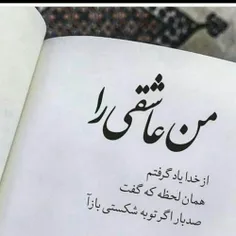 من عاشقی را
از خدا یاد گرفتم
همان لحظه که گفت
صدبار اگر توبه شکستی بازآ